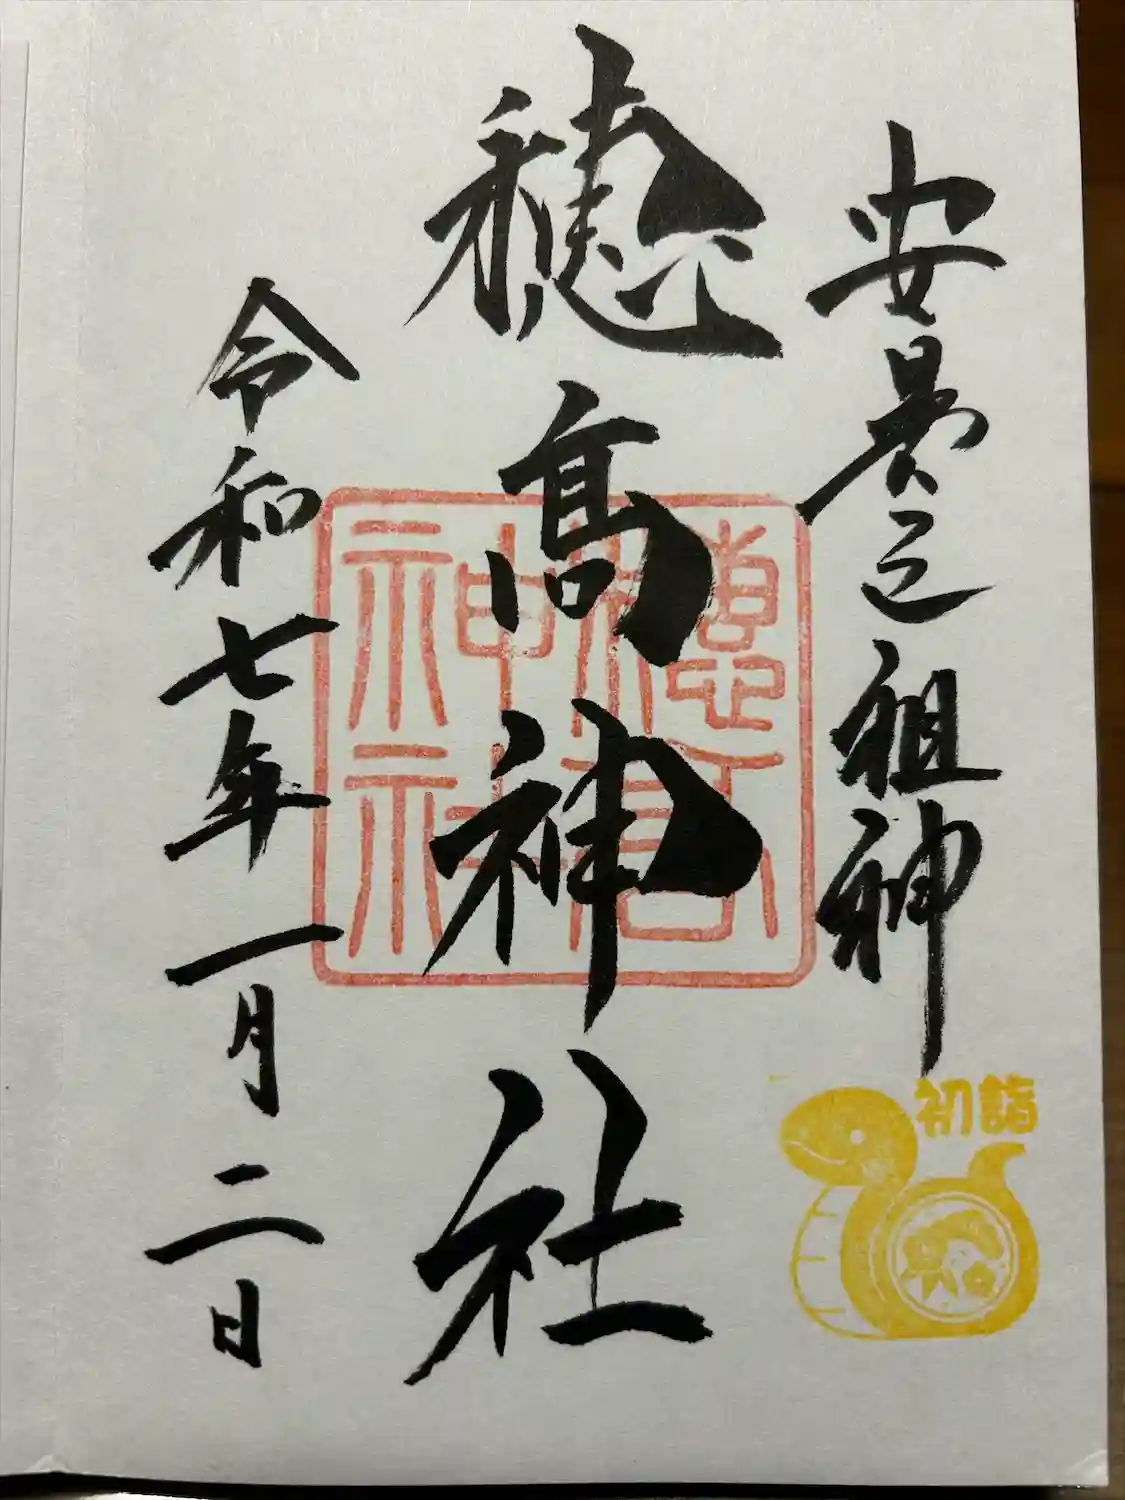 安曇之祖神
初詣
穂高神社
穂高神社
令和七年一月二日